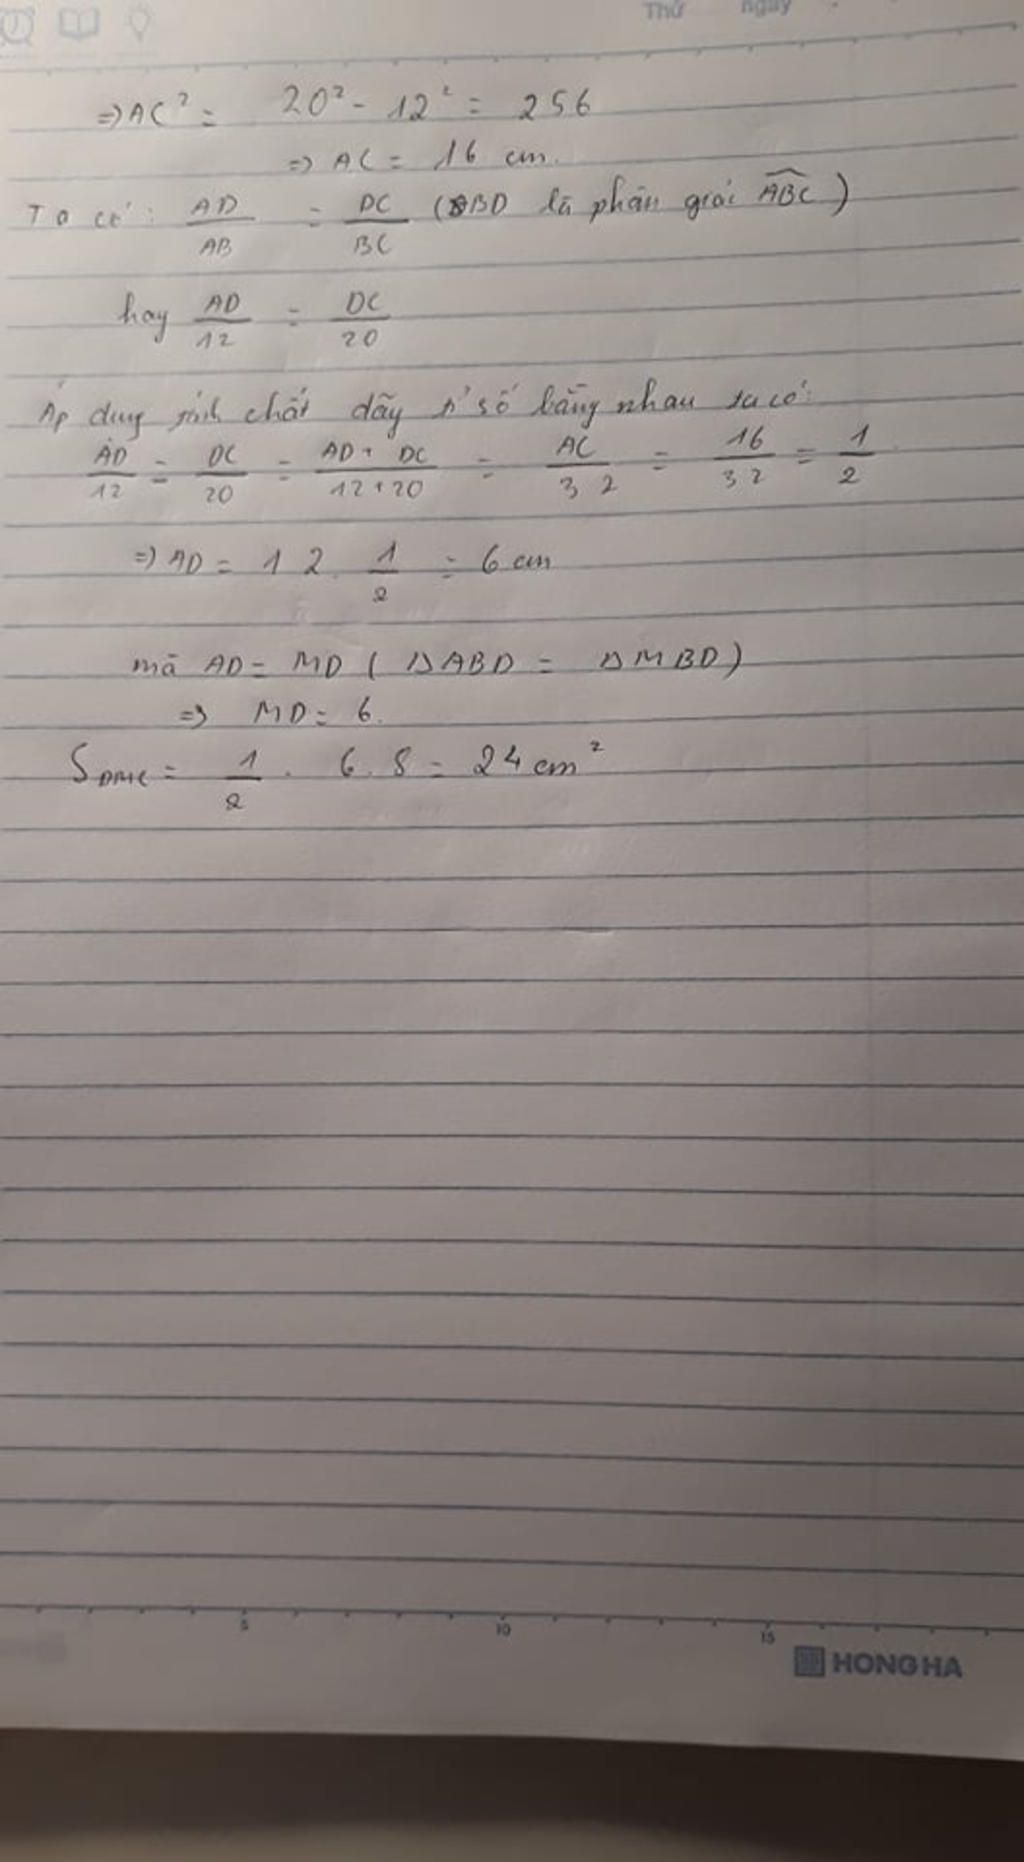 Thứ ngày
⇒ AC² = 20² - 12² = 256
⇒ AC = 16 cm.
Ta có: AD/AB = DC/BC (BD là phân giác ABC)
hay AD/12 = DC/20
Áp dụng tính chất dãy tỉ số bằng nhau ta có:
AD/12 = DC/20 = AD+DC/12+20 = AC/32 = 16/32 = 1/2
⇒ AD = 12. 1/2 = 6 cm
mà AD = MD (ΔABD = ΔMBD)
⇒ MD = 6.
S DMC = 1/2 . 6.8 = 24 cm²
5 10 15
HONG HA